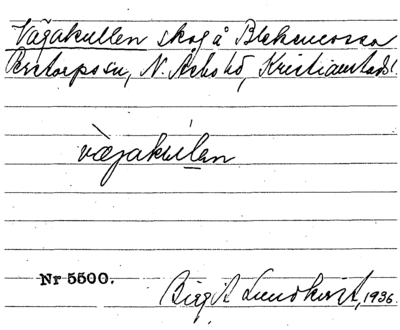 Vägakullen skog å Blekemossa
Perstorps sn, N. Åsbo hd, Kristianstads l.
vägakullen
Nr 5500.
Birgit Lundkvist, 1936.